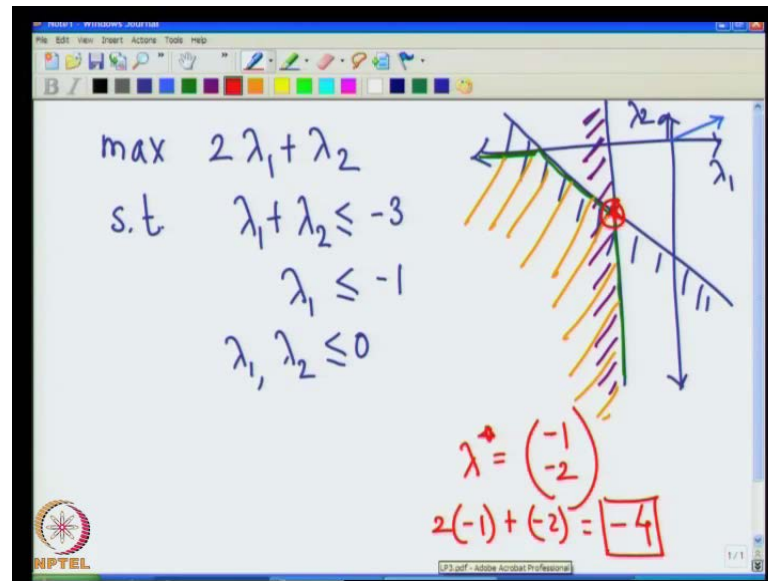 Note1 - Windows Journal
File Edit View Insert Actions Tools Help
B I
max 2λ₁ + λ₂
s.t. λ₁ + λ₂ ≤ -3
λ₁ ≤ -1
λ₁, λ₂ ≤ 0
λ₂
λ₁
λ* = (-1
-2)
2(-1) + (-2) = -4
NPTEL
LP3.pdf - Adobe Acrobat Professional
1/1